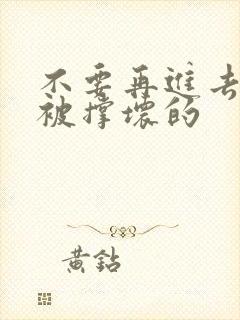 不要再進去
被撐壞的
黃鉆